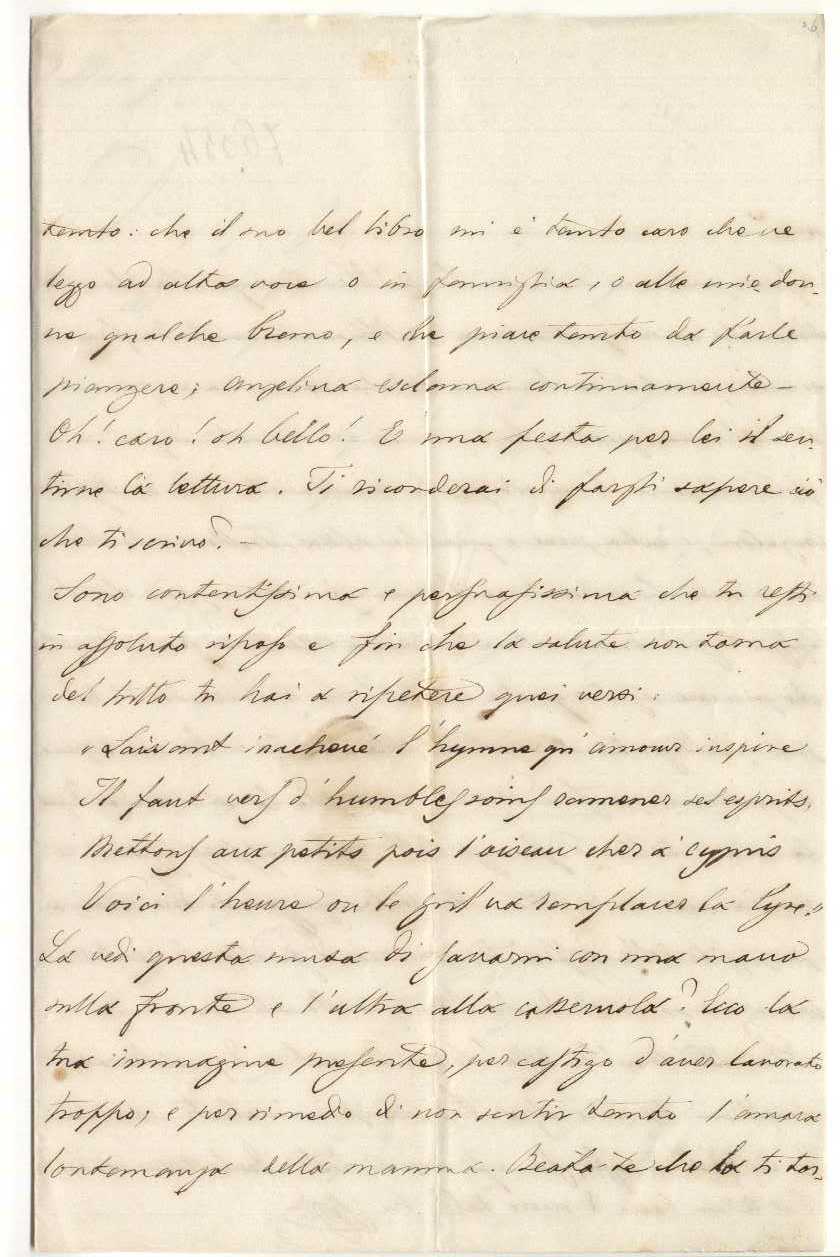 tanto: che il suo bel libro mi è tanto caro che ne
leggo ad alta voce o in famiglia, o alle mie don-
ne qualche brano, e che piace tanto da farle
piangere; Angelina esclama continuamente –
Oh! caro! oh bello! E una festa per lei il sen-
tirne la lettura. Ti ricorderai di fargli sapere ciò
che ti scrivo? –
Sono contentissima e persuasissima che tu resti
in assoluto riposo e fin che la salute non torna
del tutto tu hai a ripetere quei versi:
"Laissant inachevé l'hymne qu'amour inspire
Il faut vers d'humbles soins ramener ses esprits.
Mettons aux petits pois l'oiseau cher à Cypris
Voici l'heure ou le gril va remplacer la lyre."
La vedi questa musa di Gavarni con una mano
sulla fronte e l'altra alla casseruola? Ecco la
tua immagine presente, per castigo d'aver lavorato
troppo; e per rimedio di non sentir tanto l'amara
lontananza della mamma. Beata te che la ti tor-